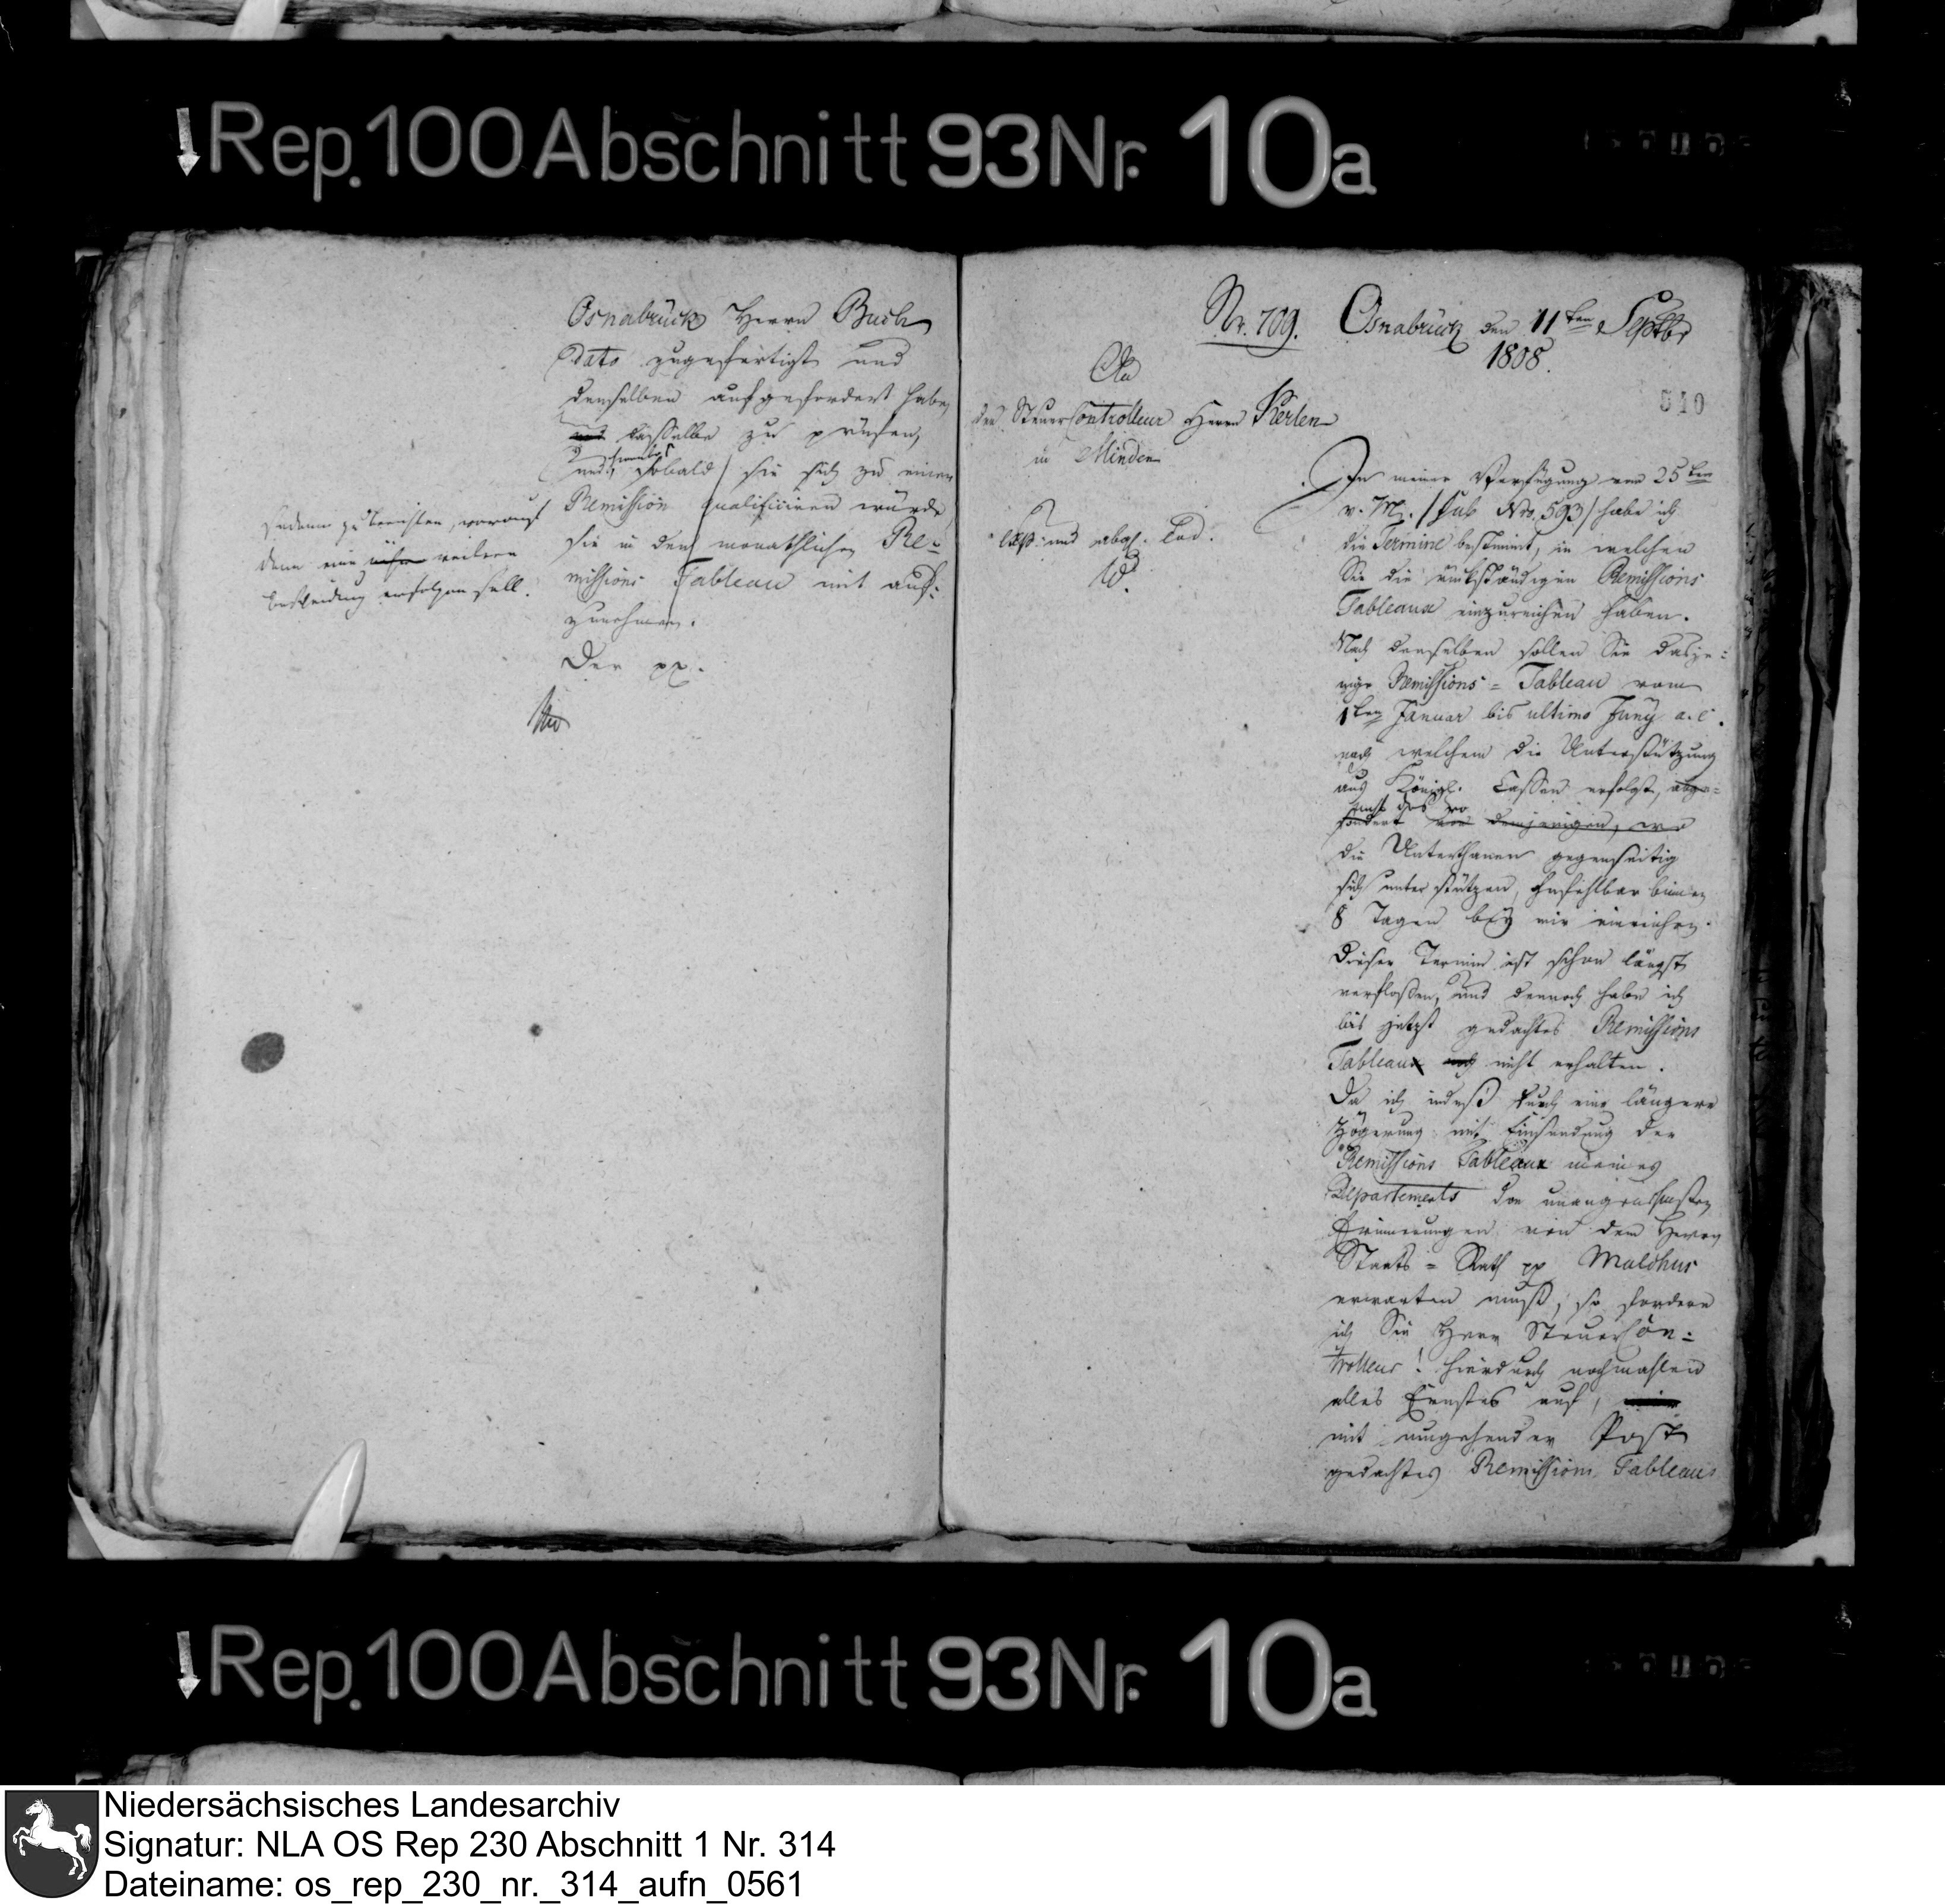 Rep. 100 Abschnitt 93 Nr. 10a
Osnabrück Herrn Buch
Dato zugefertigt und
denselben aufgefordert habe,
dasselbe zu prüfen,
und, sobald sie sich zu einer
Remission qualificiren würde
sie in dem monathlichen Re-
missions Tableau mit auf-
zunehmen.
Der pp.
sodann zu berichten, worauf
denn eine weitere
Bescheidung erfolgen soll.
Nr. 709. Osnabrück den 11ten Septbr
1808.
540
An
den Steuer Controlleur Herrn Kerlen
in Minden
exp. und abges. eod.
In meiner Verfügung vom 25ten
v. M. /sub Nro. 593/ habe ich
die Termine bestimmt, in welchen
Sie die rückständigen Remissions
Tableaux einzureichen haben.
Nach denselben sollen Sie dasje-
nige Remissions-Tableau vom
1ten Januar bis ultimo Juny a. c.
nach welchem die Unterstützung
aus Königl. Cassen erfolgt, abge-
sondert von demjenigen, wo
die Unterthanen gegenseitig
sich unterstützen, unfehlbar binnen
8 Tagen bey mir einreichen.
Dieser Termin ist schon längst
verflossen, und dennoch habe ich
bis jetzt gedachtes Remissions
Tableau noch nicht erhalten.
Da ich indeß durch eine längere
Zögerung mit Einsendung der
Remissions Tableaux meines
Departements den unangenehmsten
Erinnerungen von dem Herrn
Staats-Rath pp Malchus
erwarten muß, so fordere
ich Sie Herr Steuer Con-
trolleur! hierdurch nochmahlen
alles Ernstes auf,
mit umgehender Post
gedachtes Remissions Tableau
Rep. 100 Abschnitt 93 Nr. 10a
Niedersächsisches Landesarchiv
Signatur: NLA OS Rep 230 Abschnitt 1 Nr. 314
Dateiname: os_rep_230_nr._314_aufn_0561